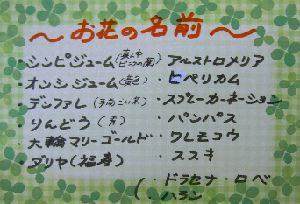 ～お花の名前～
・シンピジューム
・オンシジューム(黄色)
・デンファレ
・りんどう(青)
・大輪マリーゴールド
・ダリヤ
・アルストロメリア
・ヒペリカム
・スプレーカーネーション
・パンパス
・ワレモコウ
・ススキ
(・ドラセナ・ロベ
・ハラン